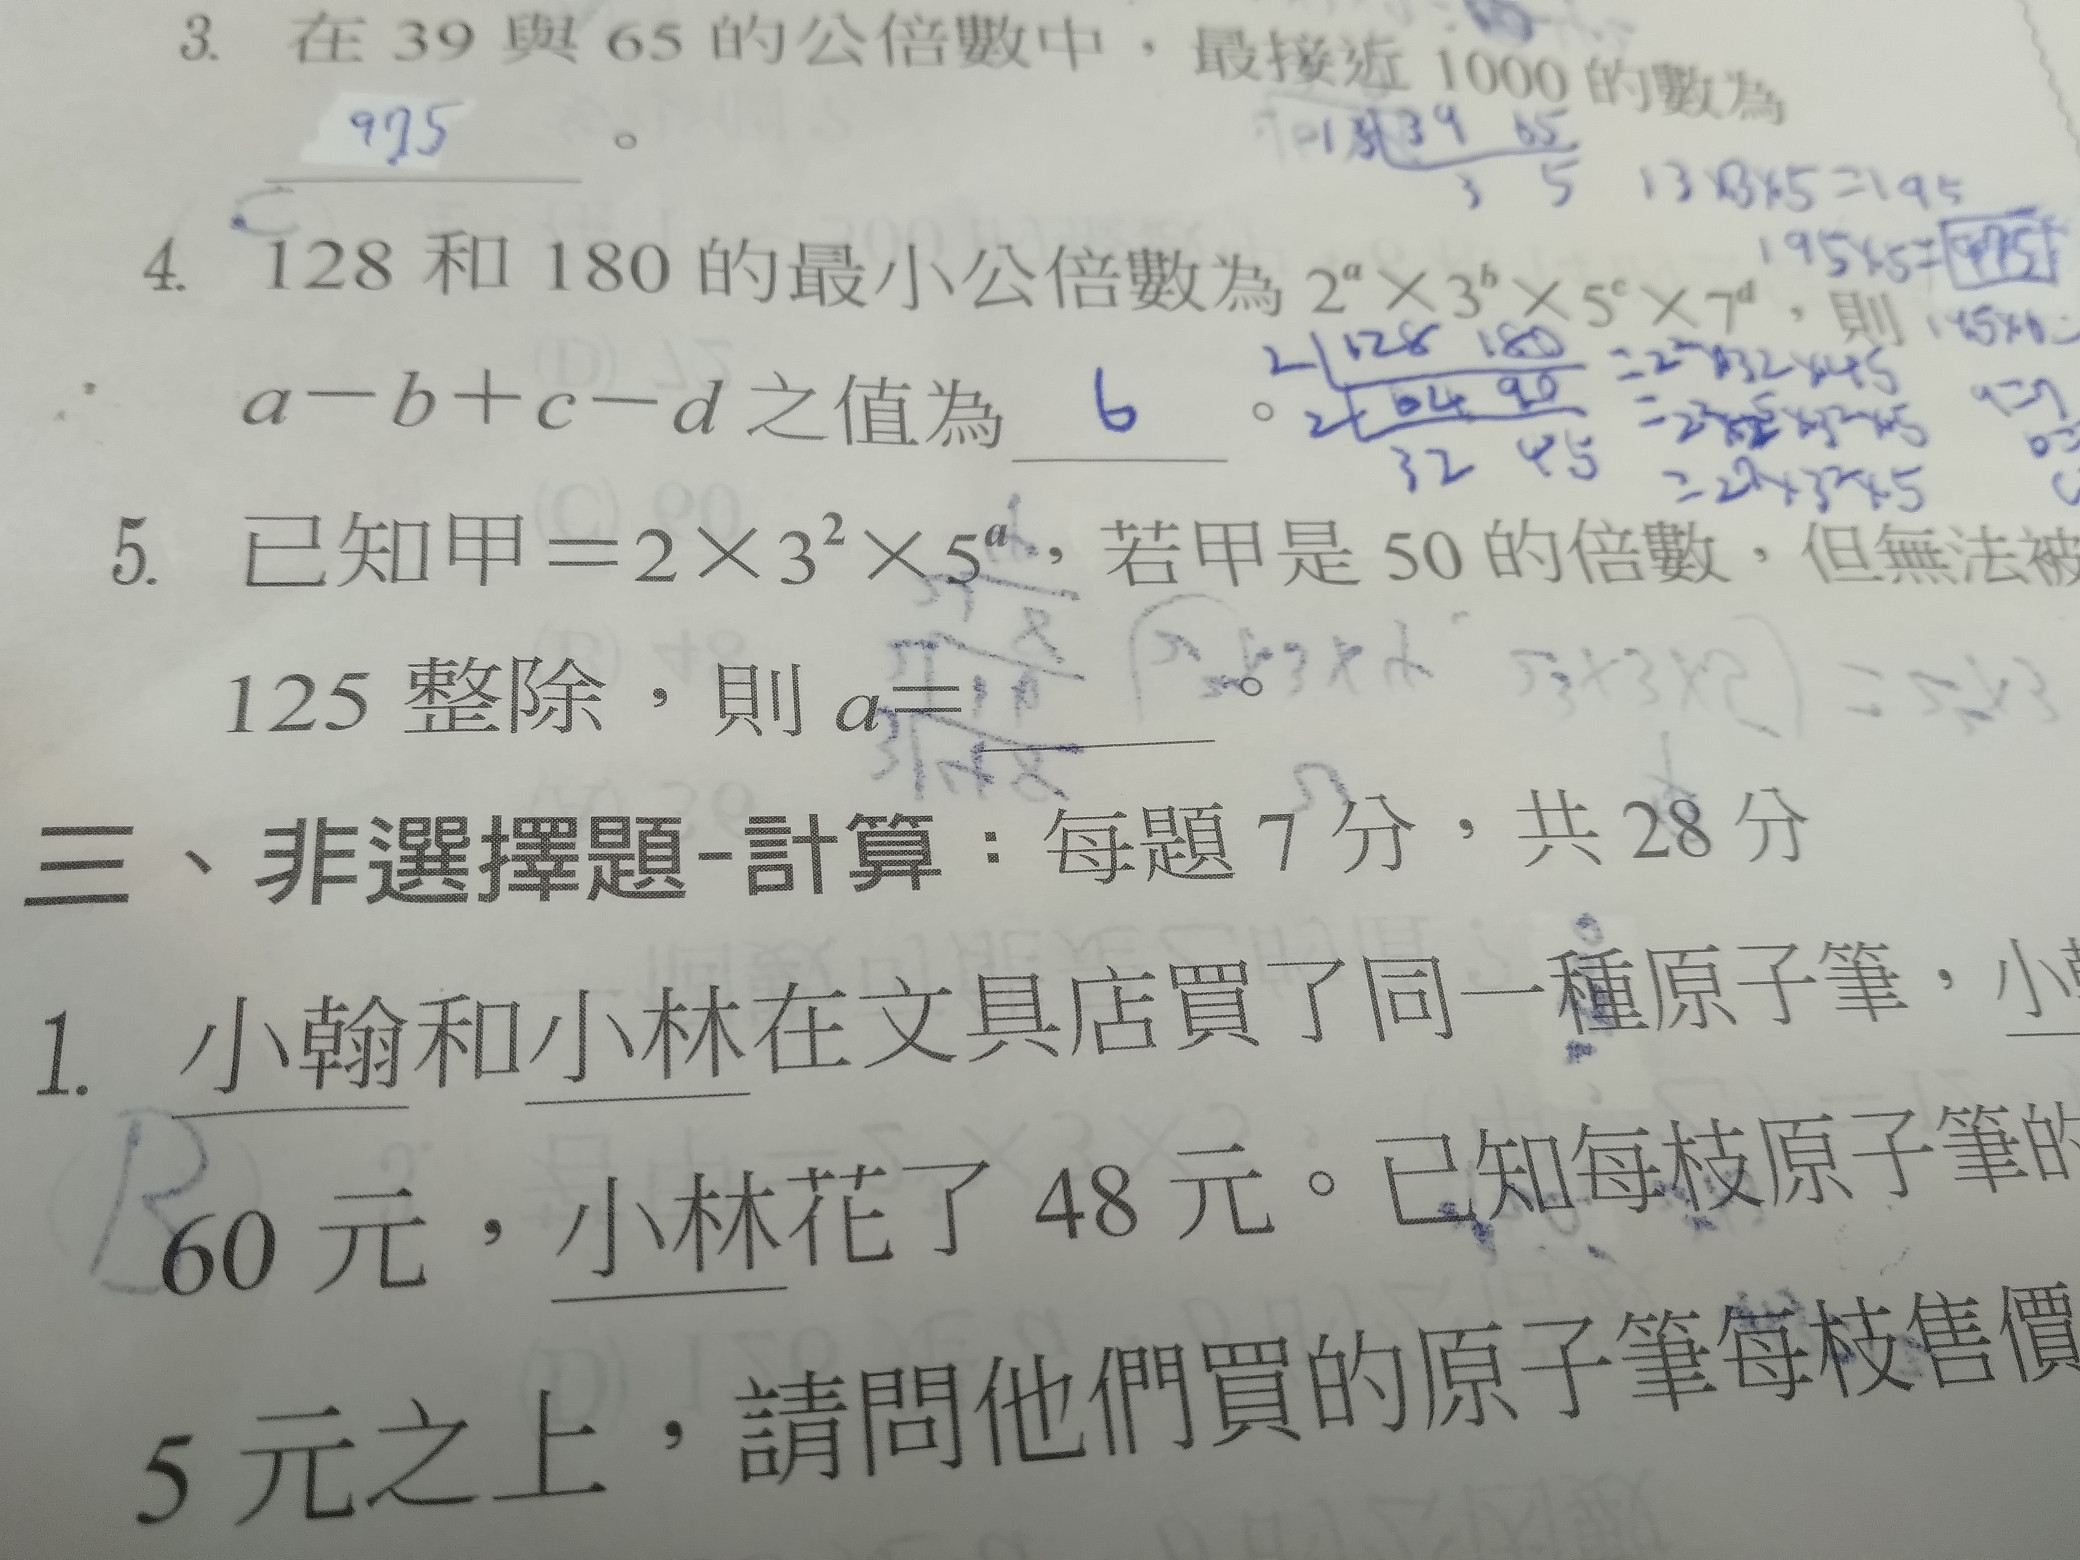 3. 在 39 與 65 的公倍數中，最接近 1000 的數為
975 。
13 39 65
3 5 13×3×5=195
195×5=975
4. 128 和 180 的最小公倍數為 2ᵃ×3ᵇ×5ᶜ×7ᵈ，則
a－b＋c－d 之值為 6 。
2 128 180 =2²×32×45
2 64 90
32 45
5. 已知甲＝2×3²×5ᵃ，若甲是 50 的倍數，但無法被
125 整除，則 a＝ 。
三、非選擇題-計算：每題 7 分，共 28 分
1. 小翰和小林在文具店買了同一種原子筆，小
60 元，小林花了 48 元。已知每枝原子筆的
5 元之上，請問他們買的原子筆每枝售價